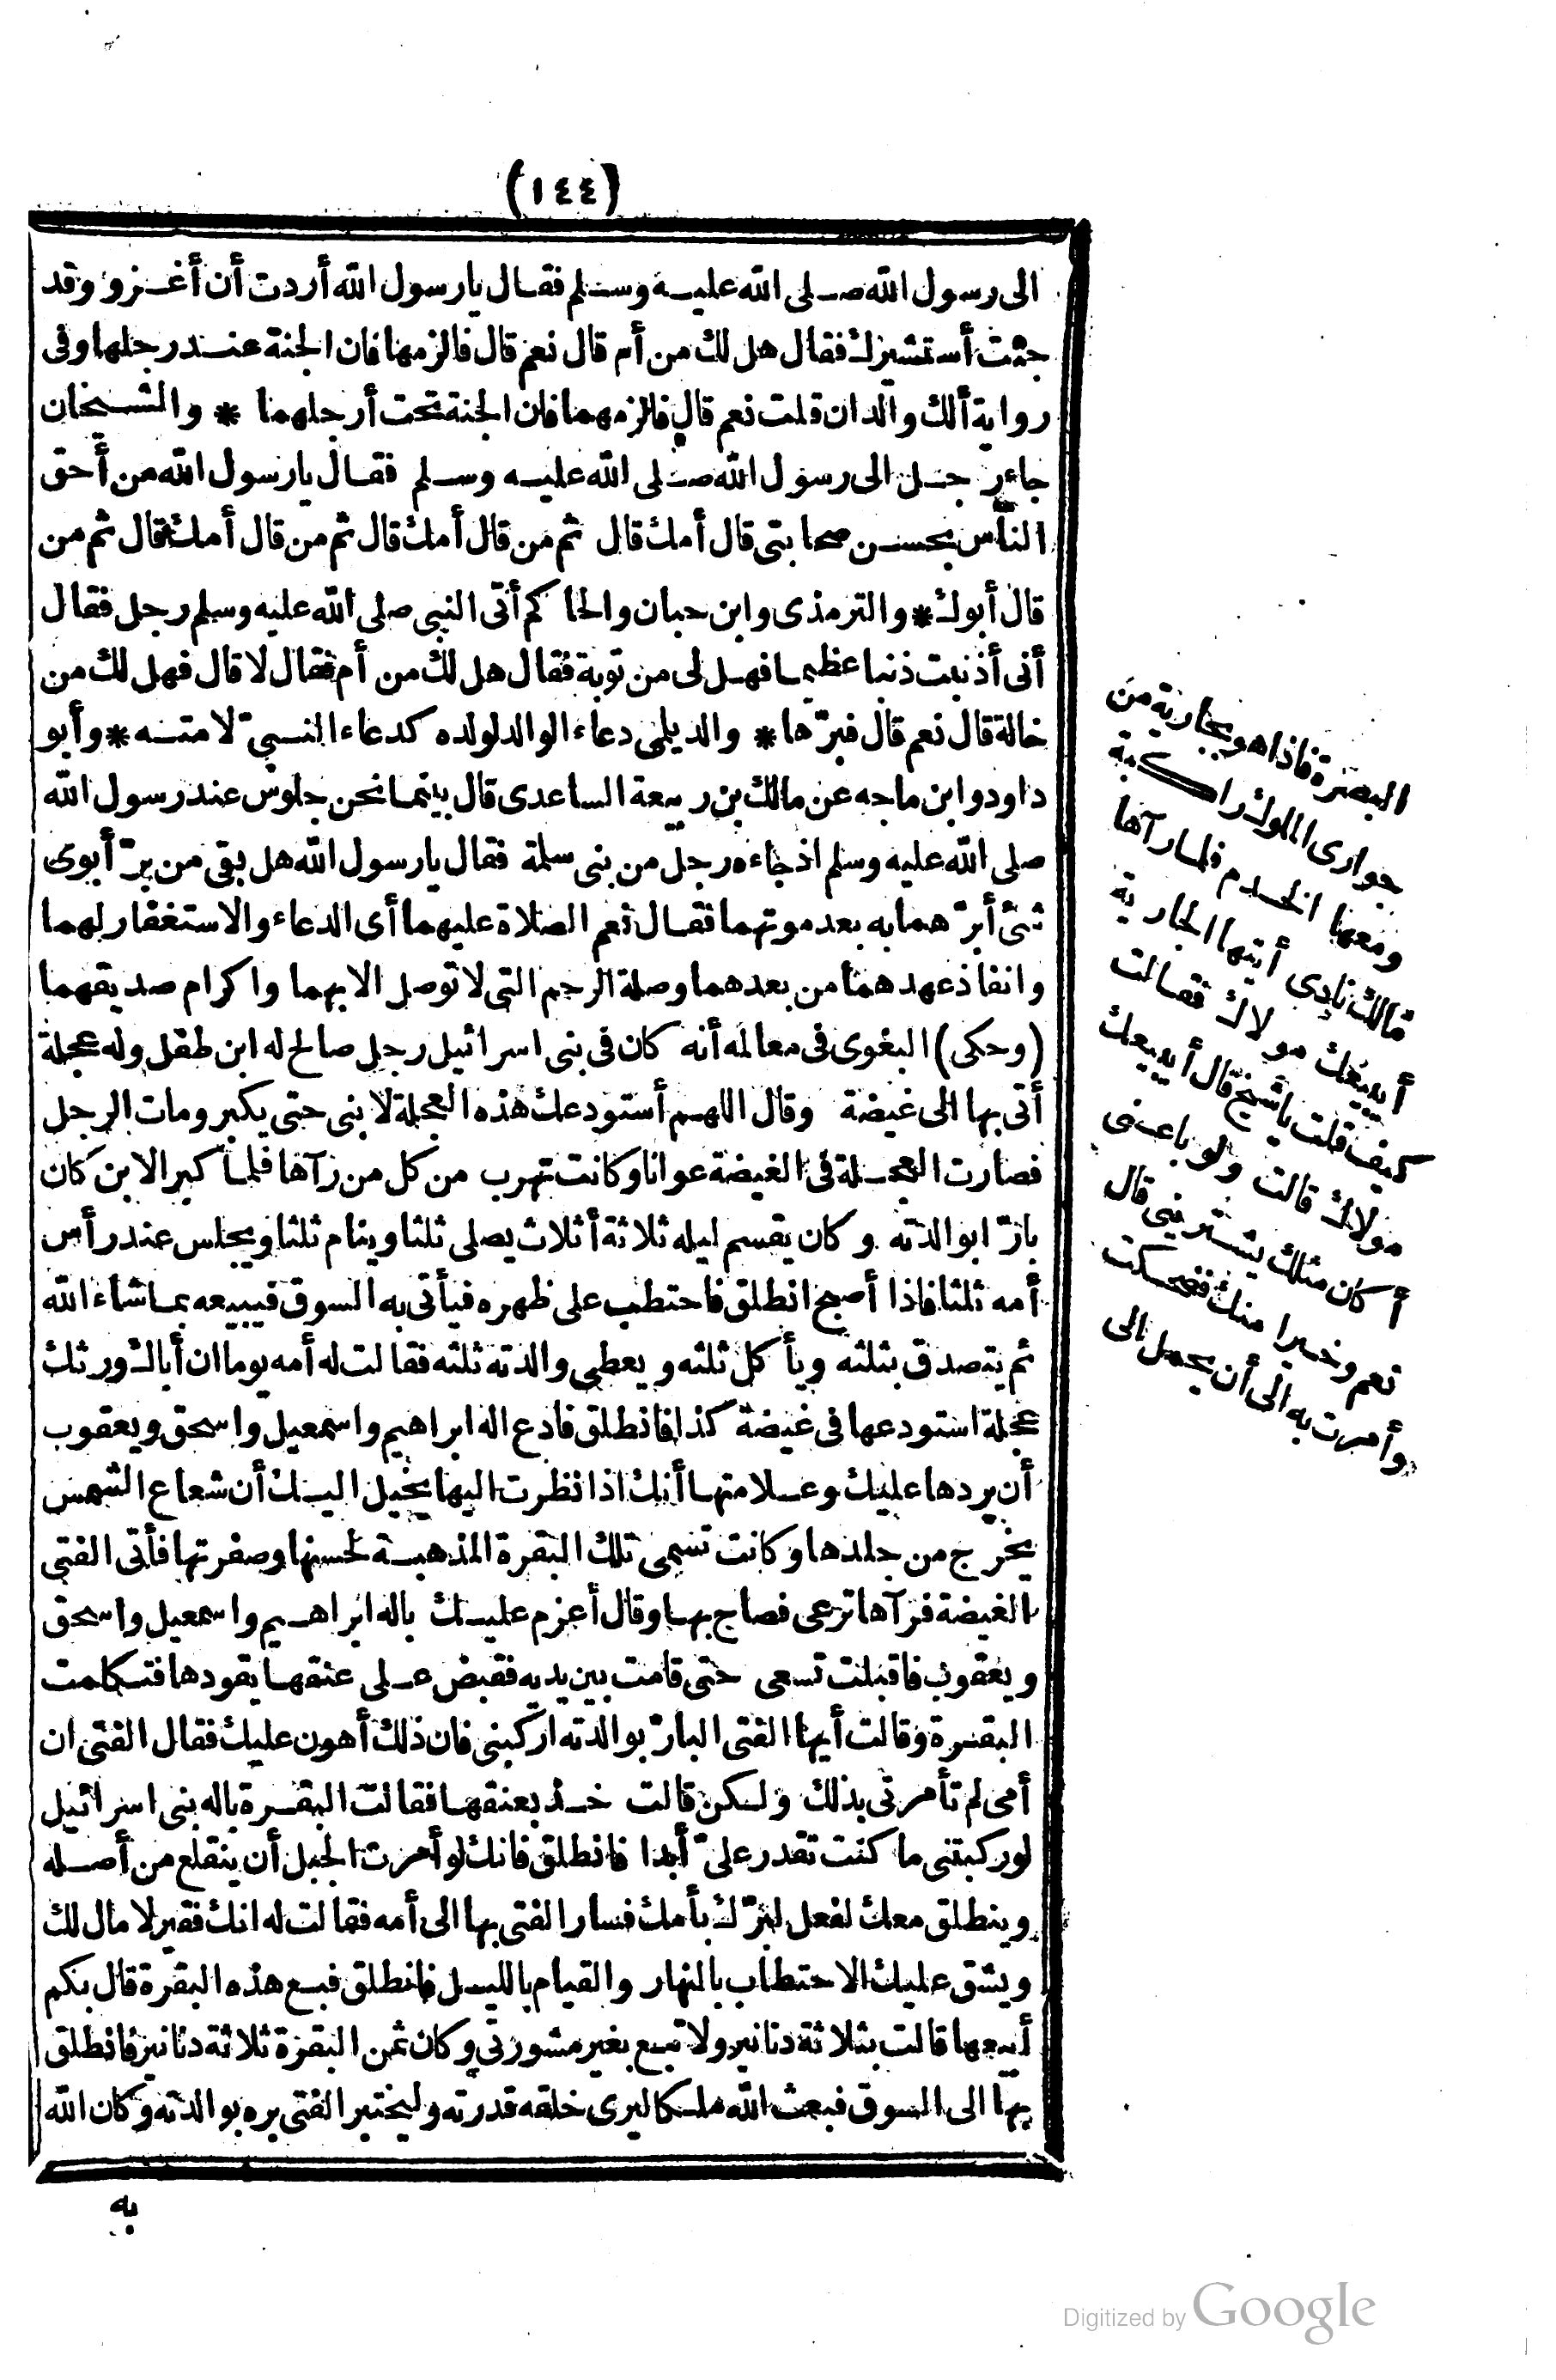 (١٤٤)
الى رسول الله صلى الله عليه وسلم فقال يا رسول الله أردت أن أغزو وقد
جئت أستشيرك فقال هل لك من أم قال نعم قال فالزمها فان الجنة عند رجلها وفى
رواية ألك والدان قلت نعم قال فالزمهما فان الجنة تحت أرجلهما * والشيخان
جاء رجل الى رسول الله صلى الله عليه وسلم فقال يا رسول الله من أحق
الناس بحسن صحابتى قال أمك قال ثم من قال أمك قال ثم من قال أمك قال ثم من
قال أبوك * والترمذى وابن حبان والحاكم أتى النبى صلى الله عليه وسلم رجل فقال
أنى أذنبت ذنبا عظيما فهل لى من توبة فقال هل لك من أم فقال لا قال فهل لك من
خالة قال نعم قال فبرّها * والديلمى دعاء الوالد لولده كدعاء النبىّ لامته * وأبو
داود وابن ماجه عن مالك بن ربيعة الساعدى قال بينما نحن جلوس عند رسول الله
صلى الله عليه وسلم اذ جاءه رجل من بنى سلمة فقال يا رسول الله هل بقى من برّ أبوى
شئ أبرّهما به بعد موتهما فقال نعم الصلاة عليهما أى الدعاء والاستغفار لهما
وانفاذ عهدهما من بعدهما وصلة الرحم التى لا توصل الا بهما واكرام صديقهما
(وحكى) البغوى فى معالمه أنه كان فى بنى اسرائيل رجل صالح له ابن طفل وله عجلة
أتى بها الى غيضة وقال اللهم أستودعك هذه العجلة لابنى حتى يكبر ومات الرجل
فصارت العجلة فى الغيضة عوانا وكانت تهرب من كل من رآها فلما كبر الابن كان
بارّا بوالدته وكان يقسم ليله ثلاثة أثلاث يصلى ثلثا وينام ثلثا ويجلس عند رأس
أمه ثلثا فاذا أصبح انطلق فاحتطب على ظهره فيأتى به السوق فيبيعه بما شاء الله
ثم يتصدق بثلثه ويأكل ثلثه ويعطى والدته ثلثه فقالت له أمه يوما ان أباك ورثك
عجلة استودعها فى غيضة كذا فانطلق فادع اله ابراهيم واسمعيل واسحق ويعقوب
أن يردها عليك وعلامتها أنك اذا نظرت اليها يخيل اليك أن شعاع الشمس
يخرج من جلدها وكانت تسمى تلك البقرة المذهبة لحسنها وصفرتها فأتى الفتى
الغيضة فرآها ترعى فصاح بها وقال أعزم عليك باله ابراهيم واسمعيل واسحق
ويعقوب فاقبلت تسعى حتى قامت بين يديه فقبض على عنقها يقودها فتكلمت
البقرة وقالت أيها الفتى البارّ بوالدته اركبنى فان ذلك أهون عليك فقال الفتى ان
أمى لم تأمرنى بذلك ولكن قالت خذ بعنقها فقالت البقرة باله بنى اسرائيل
لو ركبتنى ما كنت تقدر علىّ أبدا فانطلق فانك لو أمرت الجبل أن ينقلع من أصله
وينطلق معك لفعل لبرّك بأمك فسار الفتى بها الى أمه فقالت له انك فقير لا مال لك
ويشق عليك الاحتطاب بالنهار والقيام بالليل فانطلق فبع هذه البقرة قال بكم
أبيعها قالت بثلاثة دنانير ولا تبع بغير مشورتى وكان ثمن البقرة ثلاثة دنانير فانطلق
بها الى السوق فبعث الله ملكا ليرى خلقه قدرته وليختبر الفتى بره بوالدته وكان الله
به
البصرة فاذا هو بجارية من
جوارى الملوك راكبة
ومعها الخدم فلما رآها
مالك نادى أيتها الجارية
أيبيعك مولاك فقالت
كيف قلت يا شيخ قال أيبيعك
مولاك قالت ولو باعنى
أكان مثلك يشترينى قال
نعم وخيرا منك فضحكت
وأمرت به الى أن يحمل الى
Digitized by Google